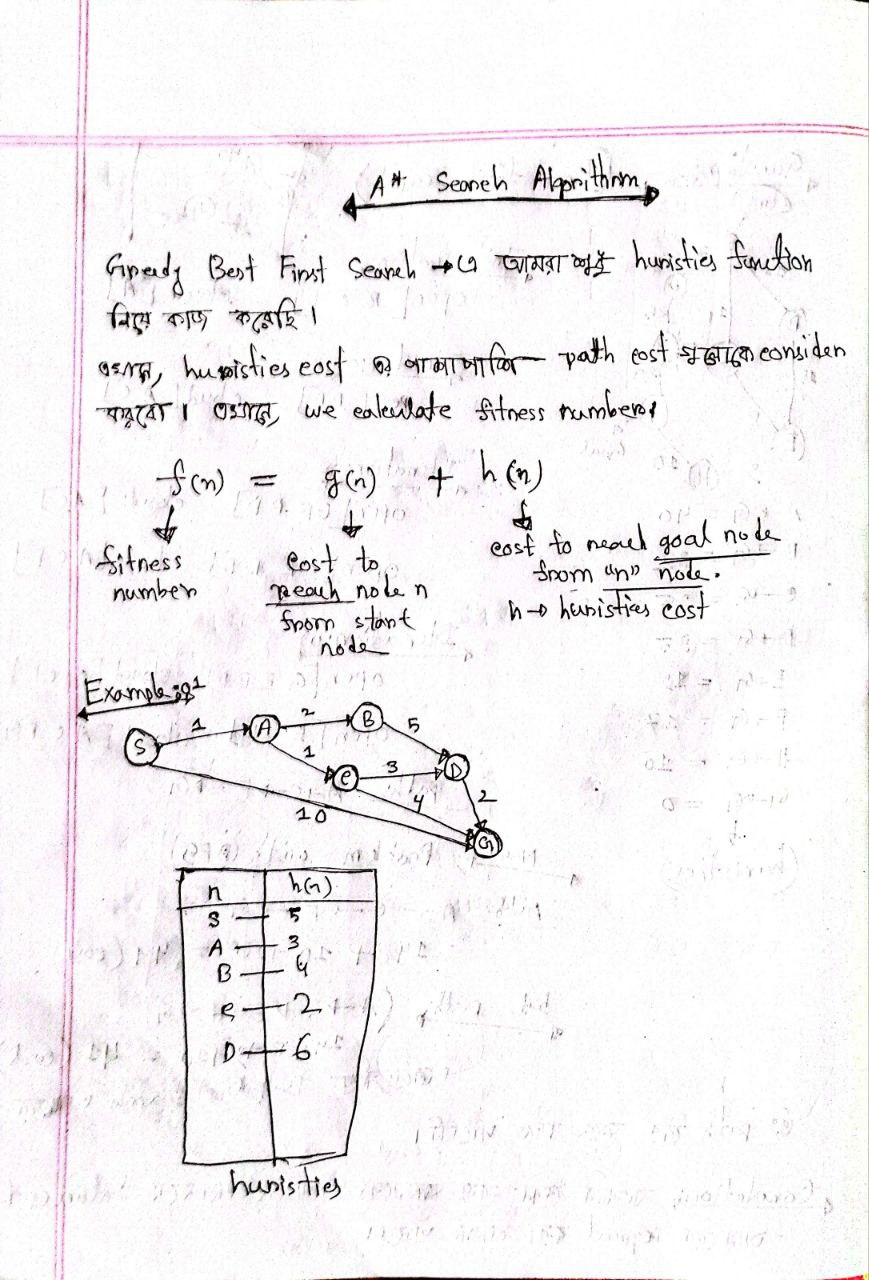 A* Search Algorithm
Greedy Best First Search → এ আমরা শুধু huristics function
নিয়ে কাজ করেছি।
এখানে, huristics cost এর পাশাপাশি path cost গুলোকে consider
করবো। এখানে, we calculate fitness number।
f(n) = g(n) + h(n)
fitness number
cost to reach node n from start node
cost to reach goal node from "n" node.
h → huristics cost
Example:01
S 1 A 2 B 5
1 C 3 D
4 2
10 G
n h(n)
S — 5
A — 3
B — 4
C — 2
D — 6
huristics